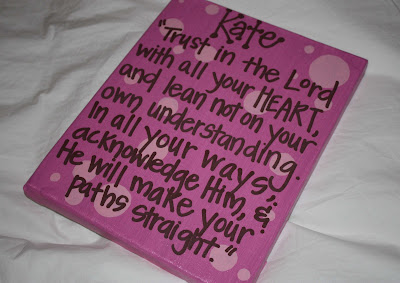 Kate
"Trust in the Lord
with all your HEART,
and lean not on your
own understanding.
In all your ways,
acknowledge Him, &
He will make your
paths straight."